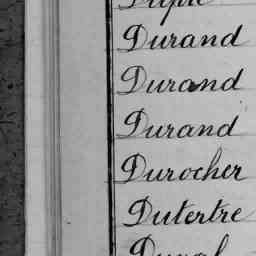 Durand
Durand
Durand
Durocher
Dutertre
Duval